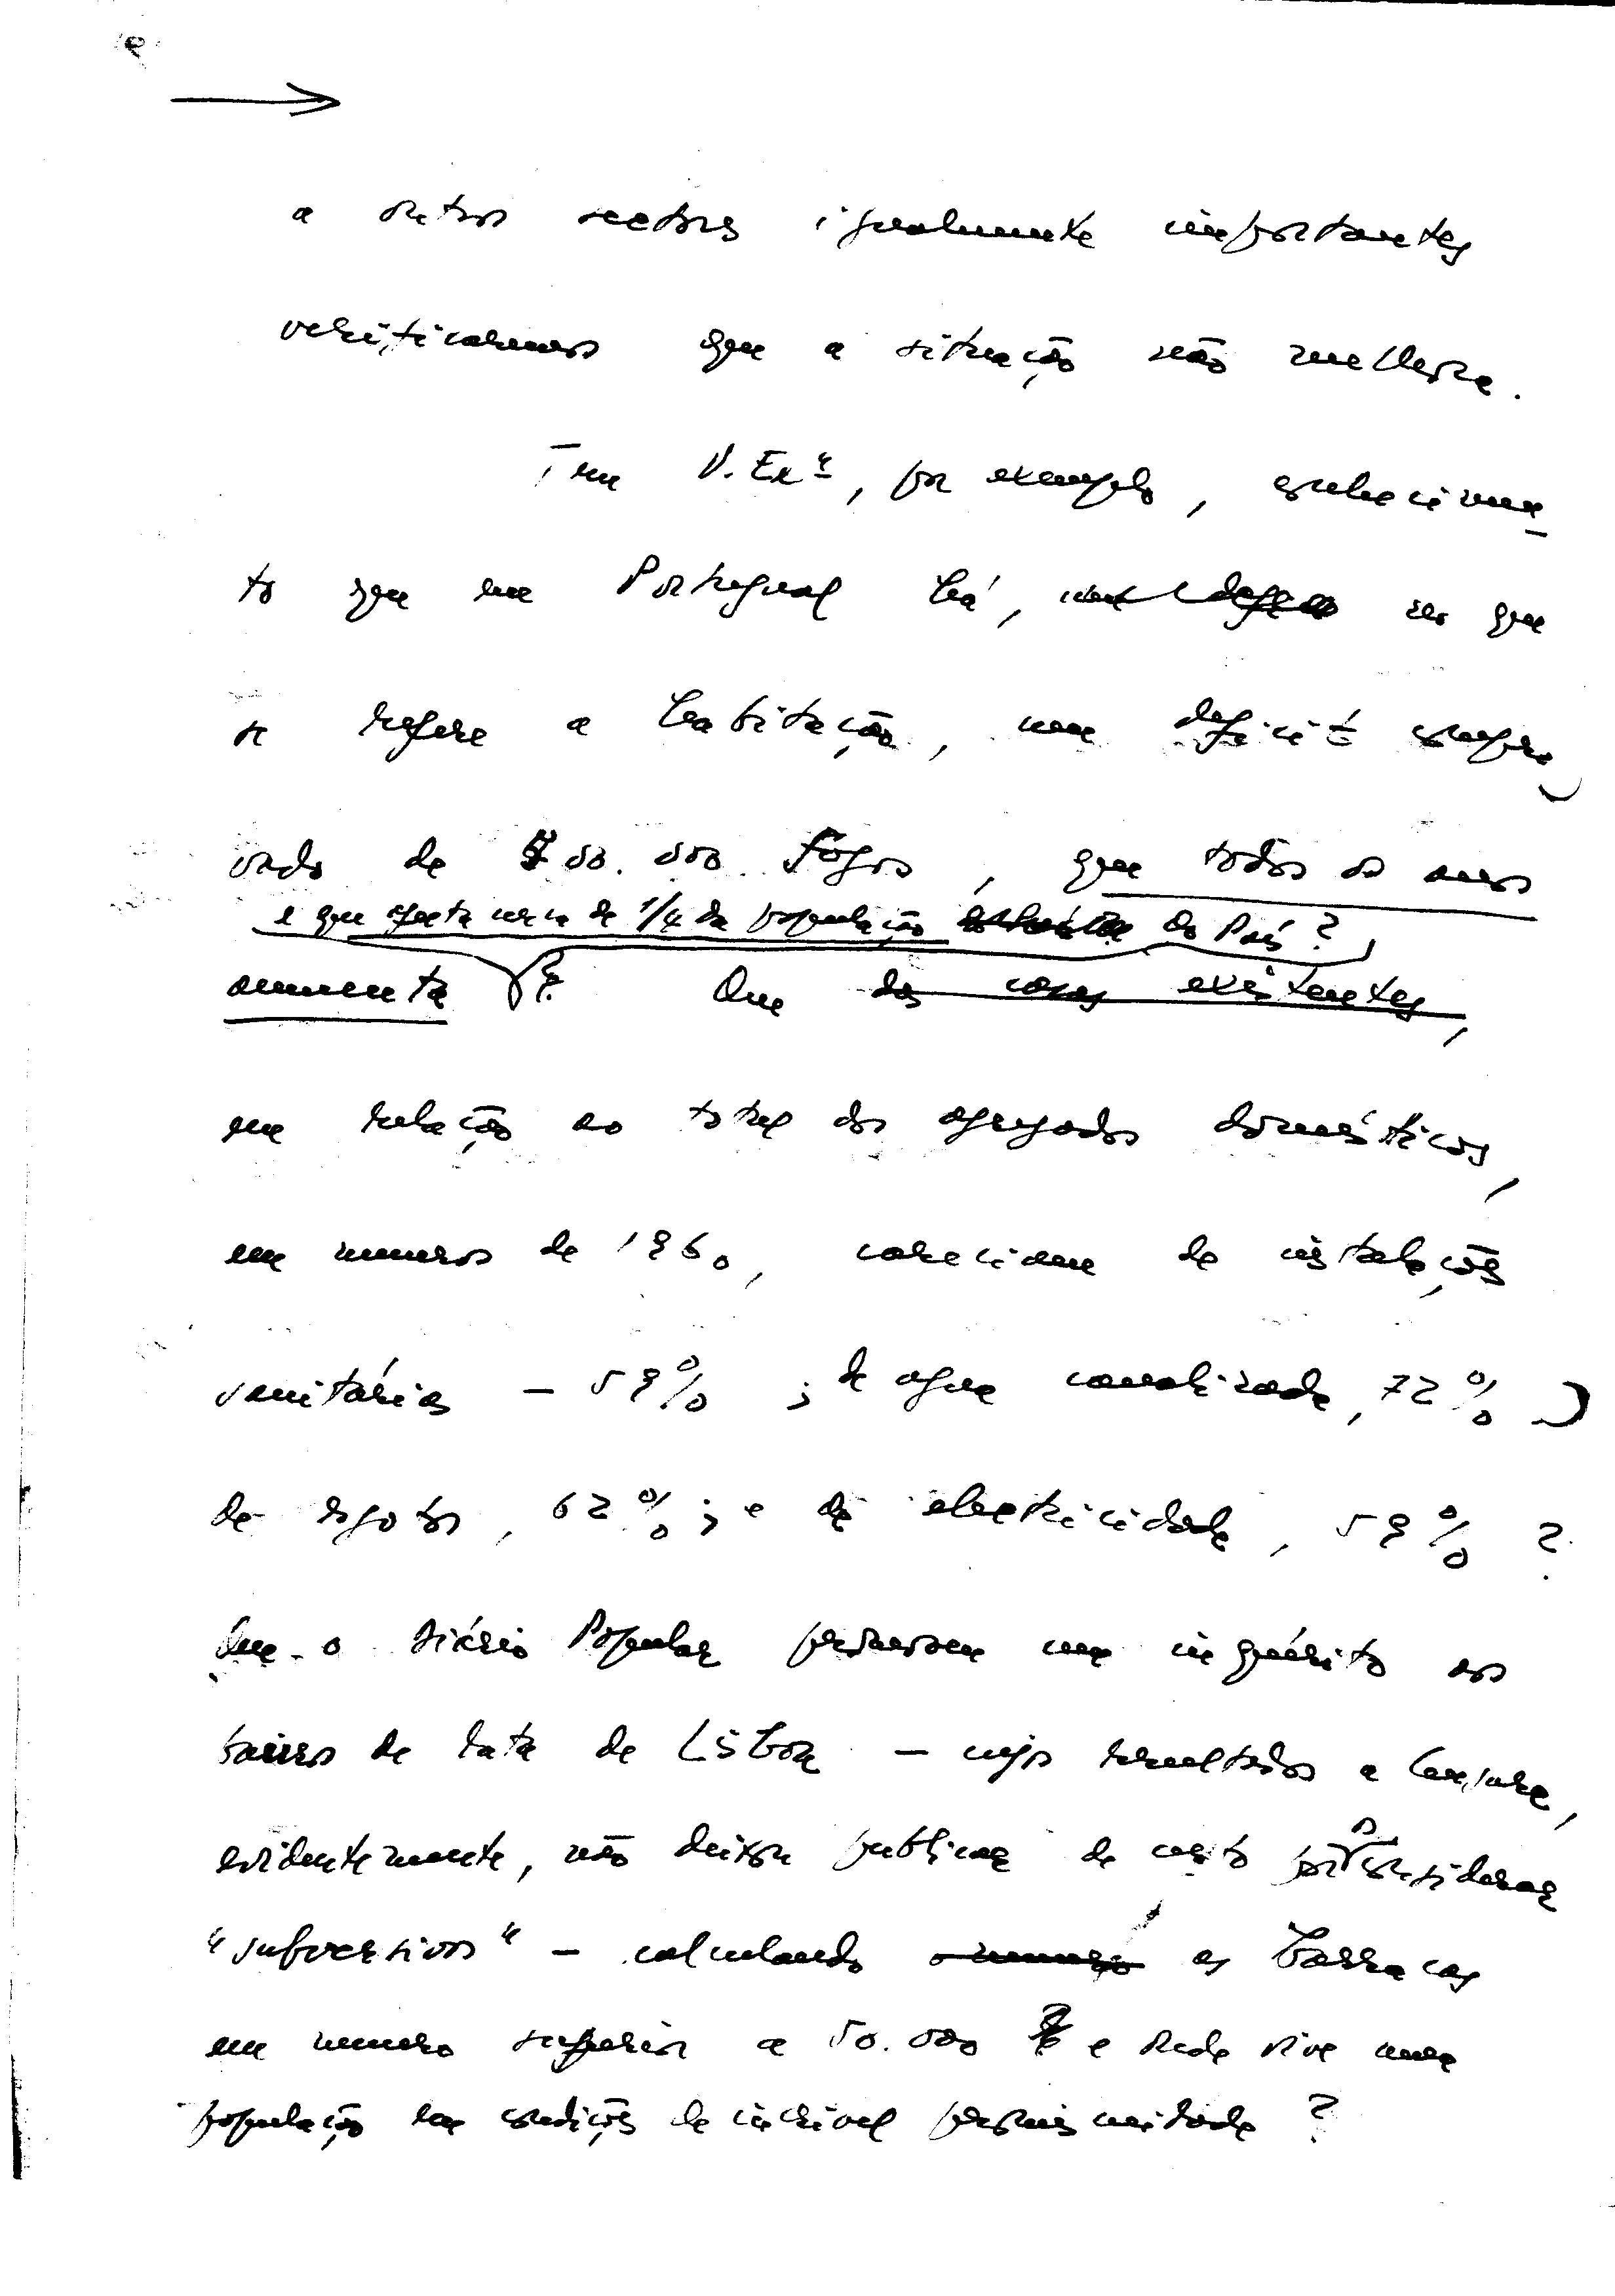 a outros sectores igualmente importantes
verificaremos que a situação não melhora.
Tem V. Exª, por exemplo, conhecimen
to que em Portugal há, no que
se refere a habitação, um deficit compro
vado de 500.000 fogos, que todos os anos
e que afecta cerca de 1/4 da população do País?
aumenta ? Que das casas existentes,
em relação ao total dos agregados domésticos,
em numeros de 1960, careciam de instalações
sanitárias - 59% ; de agua canalizada, 72%
de esgotos, 62% ; e de electricidade, 59% ?
Que o Diário Popular promoveu um inquérito aos
bairros de lata de Lisboa - cujos resultados a Censura,
evidentemente, não deixou publicar de certo por os considerar
"subversivos" - calculando o numero as barracas
em numero superior a 50.000 e onde vive uma
população em condições de incrivel promiscuidade ?